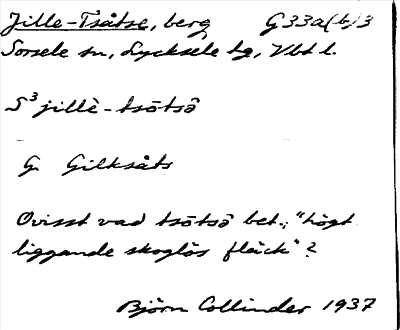 Jille-Tsåtse, berg G33a(b)3
Sorsele sn, Lycksele tg, Vbt l.
S³ jillè-tsōtsə̂
G. Gilksåts
Ovisst vad tsōtsə̂ bet.; "högt
liggande skoglös fläck"?
Björn Collinder 1937